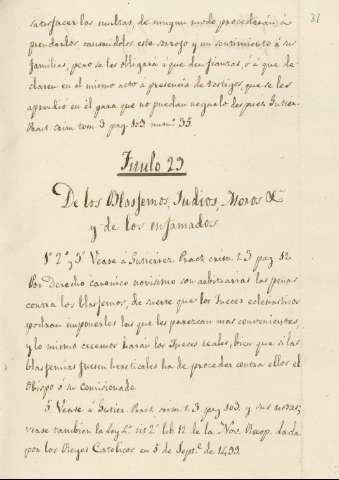 31
satisfacer las multas, de ningun modo procederán á
prenderlos causandoles este sonrojo y un sentimiento á sus
familias, pero se les obligará á que den fianzas, ó á que de-
claren en el mismo acto á presencia de testigos, que se les
aprendió en él para que no puedan negarlo despues. Gutier.
Pract. crim. tom 3 pag 103 num.º 35.
Titulo 29
De los Blasfemos, Judios, Moros &
y de los enfamados
1º 2º y 3º Vease á Gutierrez Pract. crim. t. 3 pag. 12.
Por Derecho canonico novisimo son arbitrarias las penas
contra los blasfemos, de suerte que los Jueces eclesiasticos
podran imponerles las que les parezcan mas convenientes,
y lo mismo creemos haran los Jueces reales, bien que si las
blasfemias fuesen hereticales ha de proceder contra ellos el
Obispo ó su comisionado.
5 Vease á Gutier. Pract. crim. t. 3 pag 103. y sus notas,
vease tambien la Ley 2ª tit 2º lib 12 de la Nov. Recop. dada
por los Reyes Catolicos en 5 de Septe. de 1499.